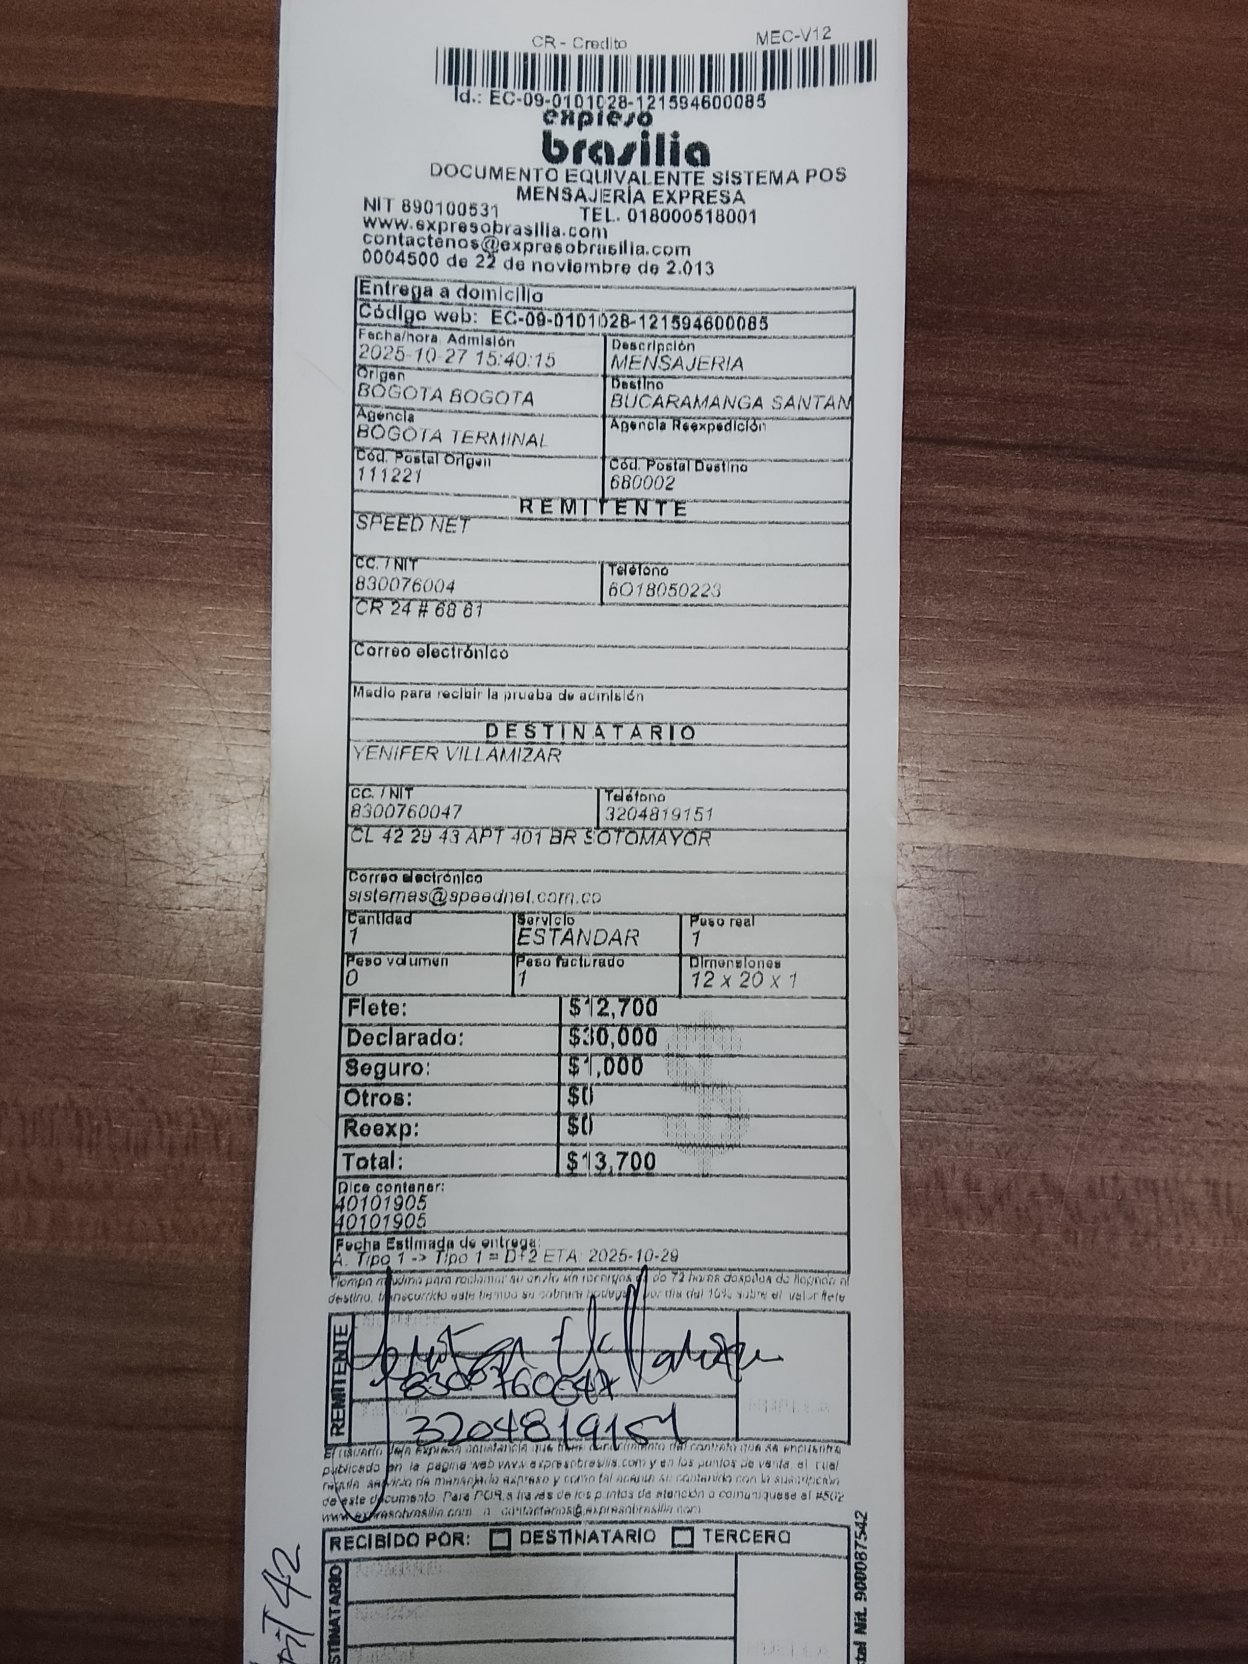 CR - Credito MEC-V12
Id.: EC-09-0101028-121594600085
expreso
brasilia
DOCUMENTO EQUIVALENTE SISTEMA POS
MENSAJERÍA EXPRESA
NIT 890100531 TEL. 018000518001
www.expresobrasilia.com
contactenos@expresobrasilia.com
0004500 de 22 de noviembre de 2.013
Entrega a domicilio
Código web: EC-09-0101028-121594600085
Fecha/hora Admisión Descripción
2025-10-27 15:40:15 MENSAJERIA
Origen Destino
BOGOTA BOGOTA BUCARAMANGA SANTAN
Agencia Agencia Reexpedición
BOGOTA TERMINAL
Cód. Postal Origen Cód. Postal Destino
111221 680002
REMITENTE
SPEED NET
CC. / NIT Teléfono
830076004 6018050223
CR 24 # 68 61
Correo electrónico
Medio para recibir la prueba de admisión
DESTINATARIO
YENIFER VILLAMIZAR
CC. / NIT Teléfono
8300760047 3204819151
CL 42 29 43 APT 401 BR SOTOMAYOR
Correo electrónico
sistemas@speednet.com.co
Cantidad Servicio Peso real
1 ESTANDAR 1
Peso volumen Peso facturado Dimensiones
0 1 12 x 20 x 1
Flete: $12,700
Declarado: $30,000
Seguro: $1,000
Otros: $0
Reexp: $0
Total: $13,700
Dice contener:
40101905
40101905
Fecha Estimada de entrega:
A. Tipo 1 -> Tipo 1 = D+2 ETA: 2025-10-29
Tiempo máximo para reclamar su envío sin recargos de 72 horas después de llegado al
destino, transcurrido este tiempo se cobrará bodegaje por día del 10% sobre el valor flete
REMITENTE
8300760047
3204819151
El usuario deja expresa constancia que tiene conocimiento del contrato que se encuentra
publicado en la pagina web www.expresobrasilia.com y en los puntos de venta, el cual
regula servicio de mensajería expreso y como tal acepta su contenido con la suscripción
de este documento. Para PQR a través de los puntos de atención o comuníquese al #502
www.expresobrasilia.com o contactenos@expresobrasilia.com
RECIBIDO POR: DESTINATARIO TERCERO
STINATARIO
tal Nit. 900087542